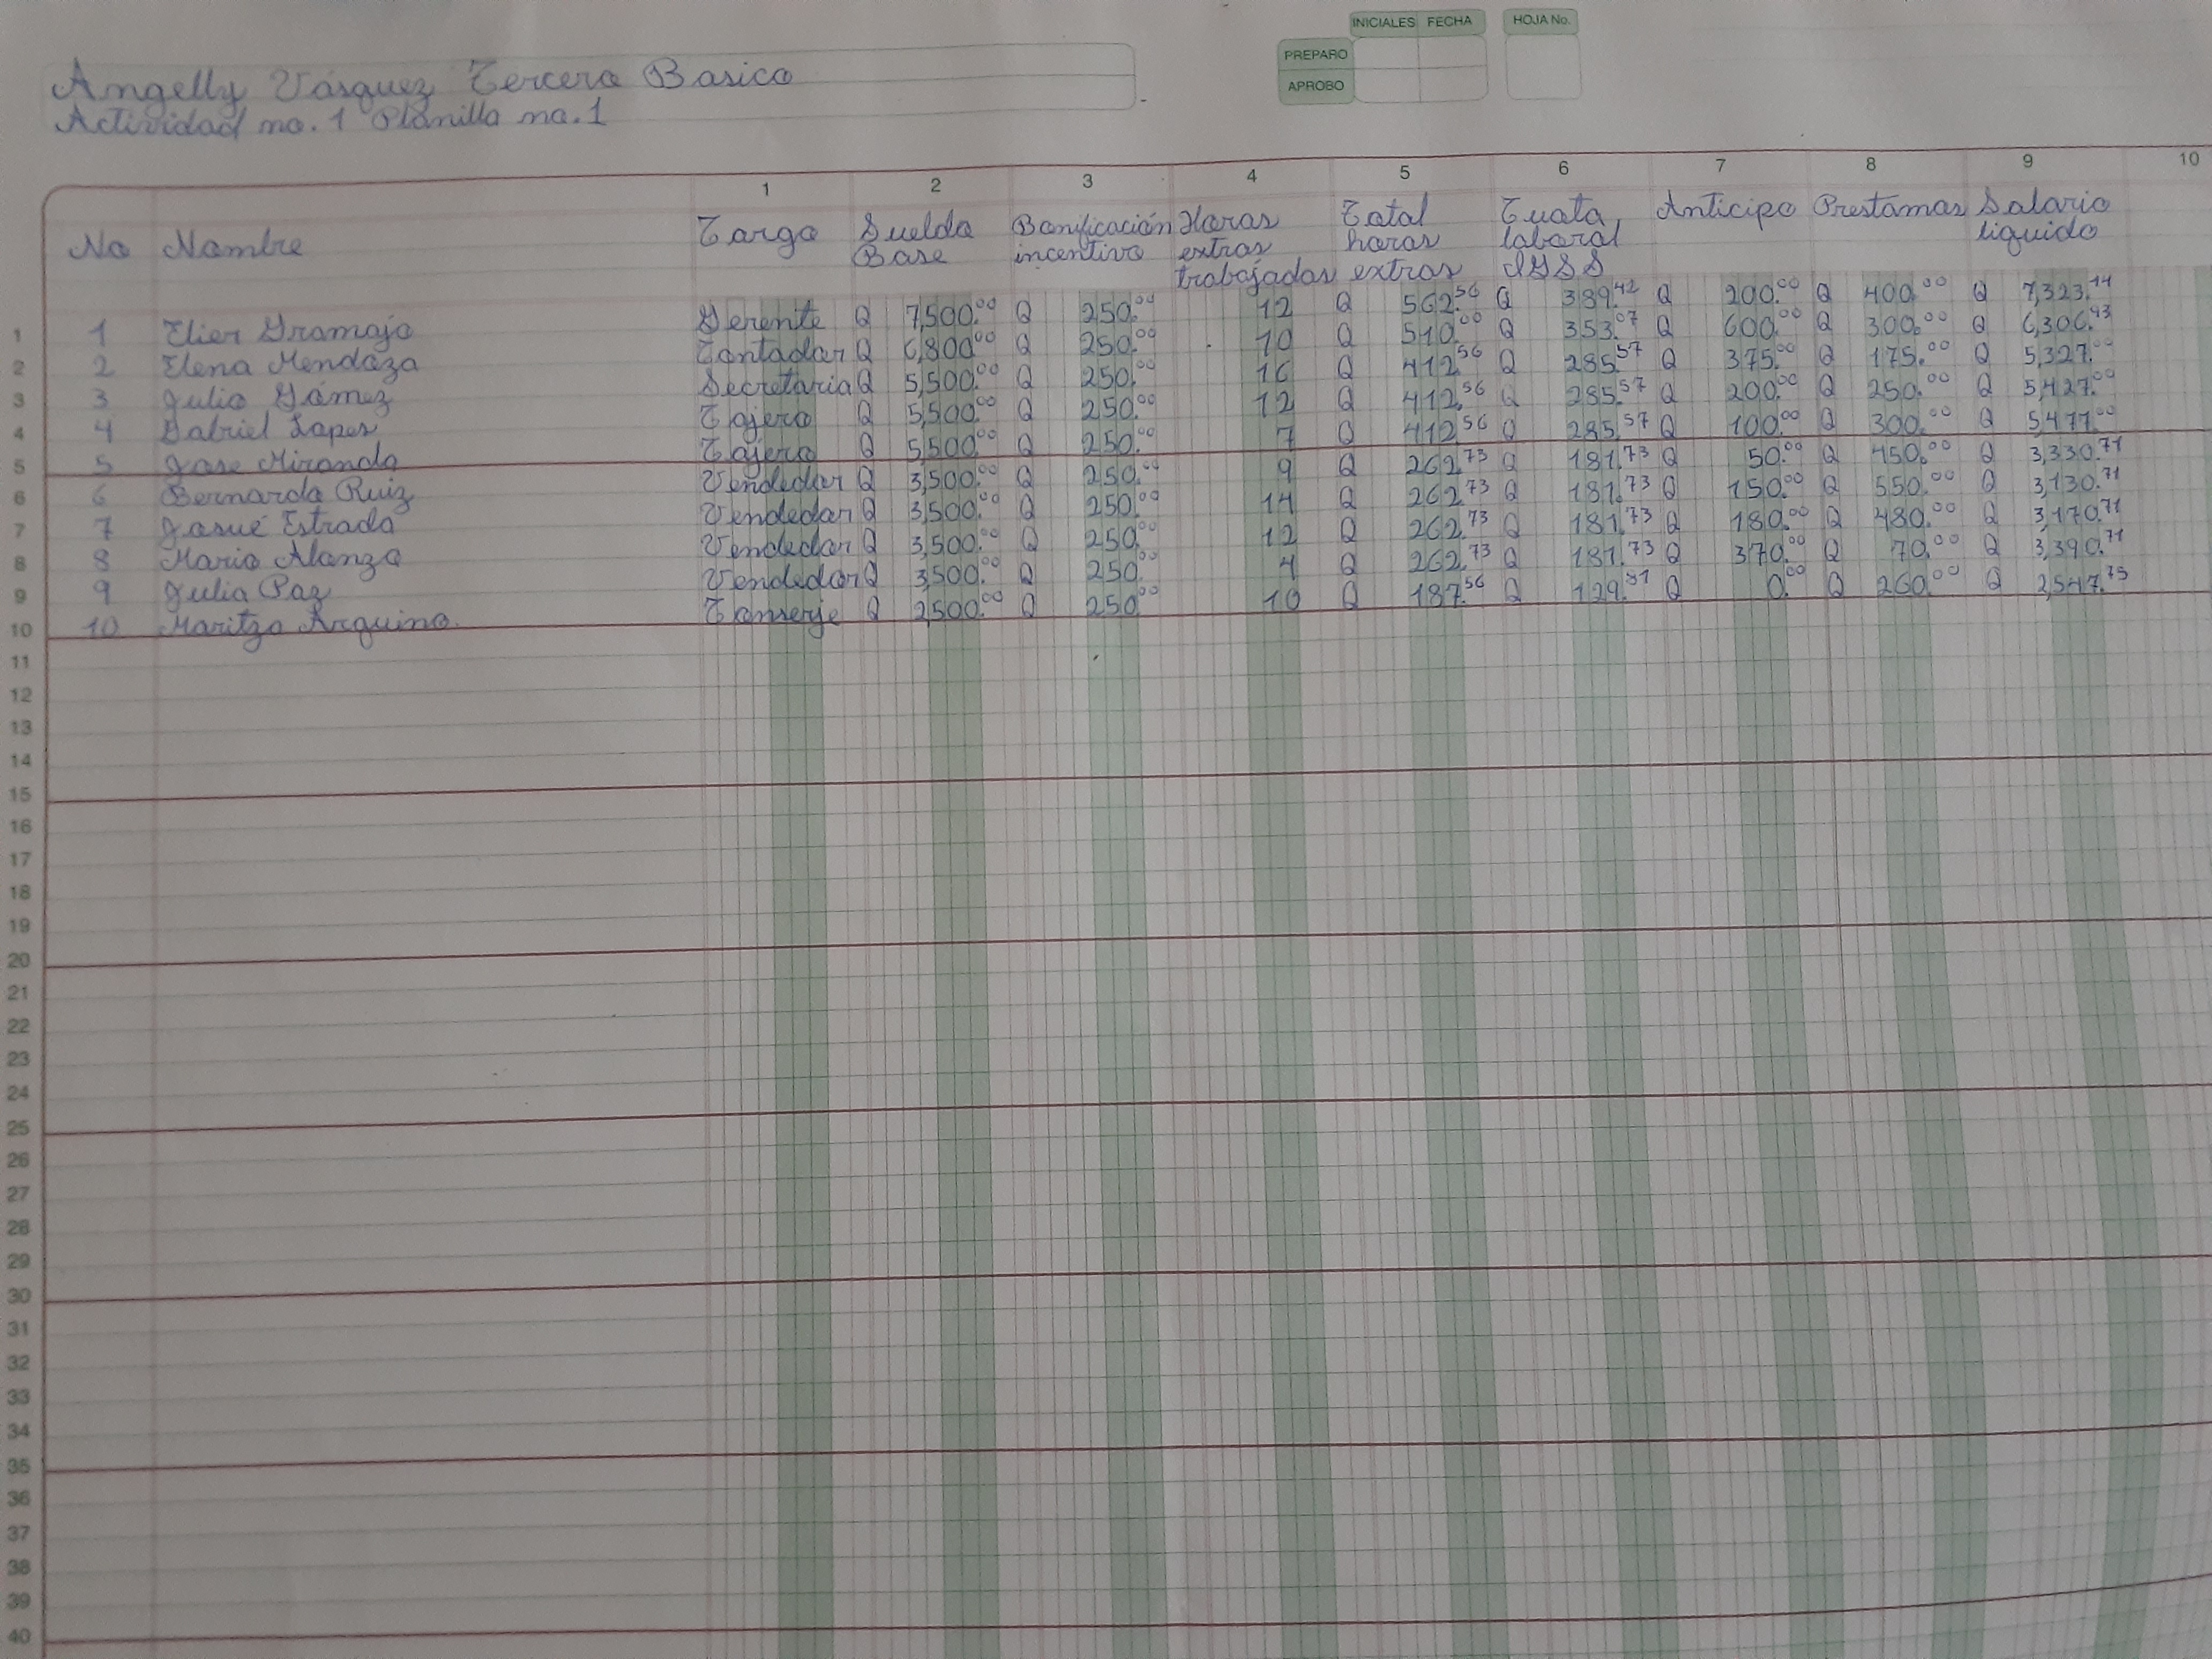 INICIALES FECHA HOJA No.
PREPARO
APROBO
Angelly Vásquez Tercero Basico
Actividad no. 1 Planilla no. 1
1 2 3 4 5 6 7 8 9 10
No Nombre Cargo Sueldo Base Bonificación incentivo Horas extras trabajadas Total horas extras Cuota laboral IGSS Anticipo Prestamos Salario liquido
1 1 Elier Gramajo Gerente Q 7,500.00 Q 250.00 12 Q 562.56 Q 389.42 Q 200.00 Q 400.00 Q 7,323.14
2 2 Elena Mendoza Contador Q 6,800.00 Q 250.00 10 Q 510.00 Q 353.07 Q 600.00 Q 300.00 Q 6,306.93
3 3 Julio Gómez Secretaria Q 5,500.00 Q 250.00 16 Q 412.56 Q 285.57 Q 375.00 Q 175.00 Q 5,327.00
4 4 Gabriel Lopes Cajero Q 5,500.00 Q 250.00 12 Q 412.56 Q 285.57 Q 200.00 Q 250.00 Q 5,427.00
5 5 Jose Miranda Cajero Q 5,500.00 Q 250.00 7 Q 412.56 Q 285.57 Q 100.00 Q 300.00 Q 5,477.00
6 6 Bernardo Ruiz Vendedor Q 3,500.00 Q 250.00 9 Q 262.73 Q 181.73 Q 50.00 Q 450.00 Q 3,330.71
7 7 Josué Estrada Vendedor Q 3,500.00 Q 250.00 14 Q 262.73 Q 181.73 Q 150.00 Q 550.00 Q 3,130.71
8 8 Mario Alonzo Vendedor Q 3,500.00 Q 250.00 12 Q 262.73 Q 181.73 Q 180.00 Q 480.00 Q 3,170.71
9 9 Julia Paz Vendedor Q 3,500.00 Q 250.00 4 Q 262.73 Q 181.73 Q 370.00 Q 70.00 Q 3,390.71
10 10 Maritza Arquino. Conserje Q 2,500.00 Q 250.00 10 Q 187.56 Q 129.81 Q 0.00 Q 260.00 Q 2,547.75
11
12
13
14
15
16
17
18
19
20
21
22
23
24
25
26
27
28
29
30
31
32
33
34
35
36
37
38
39
40